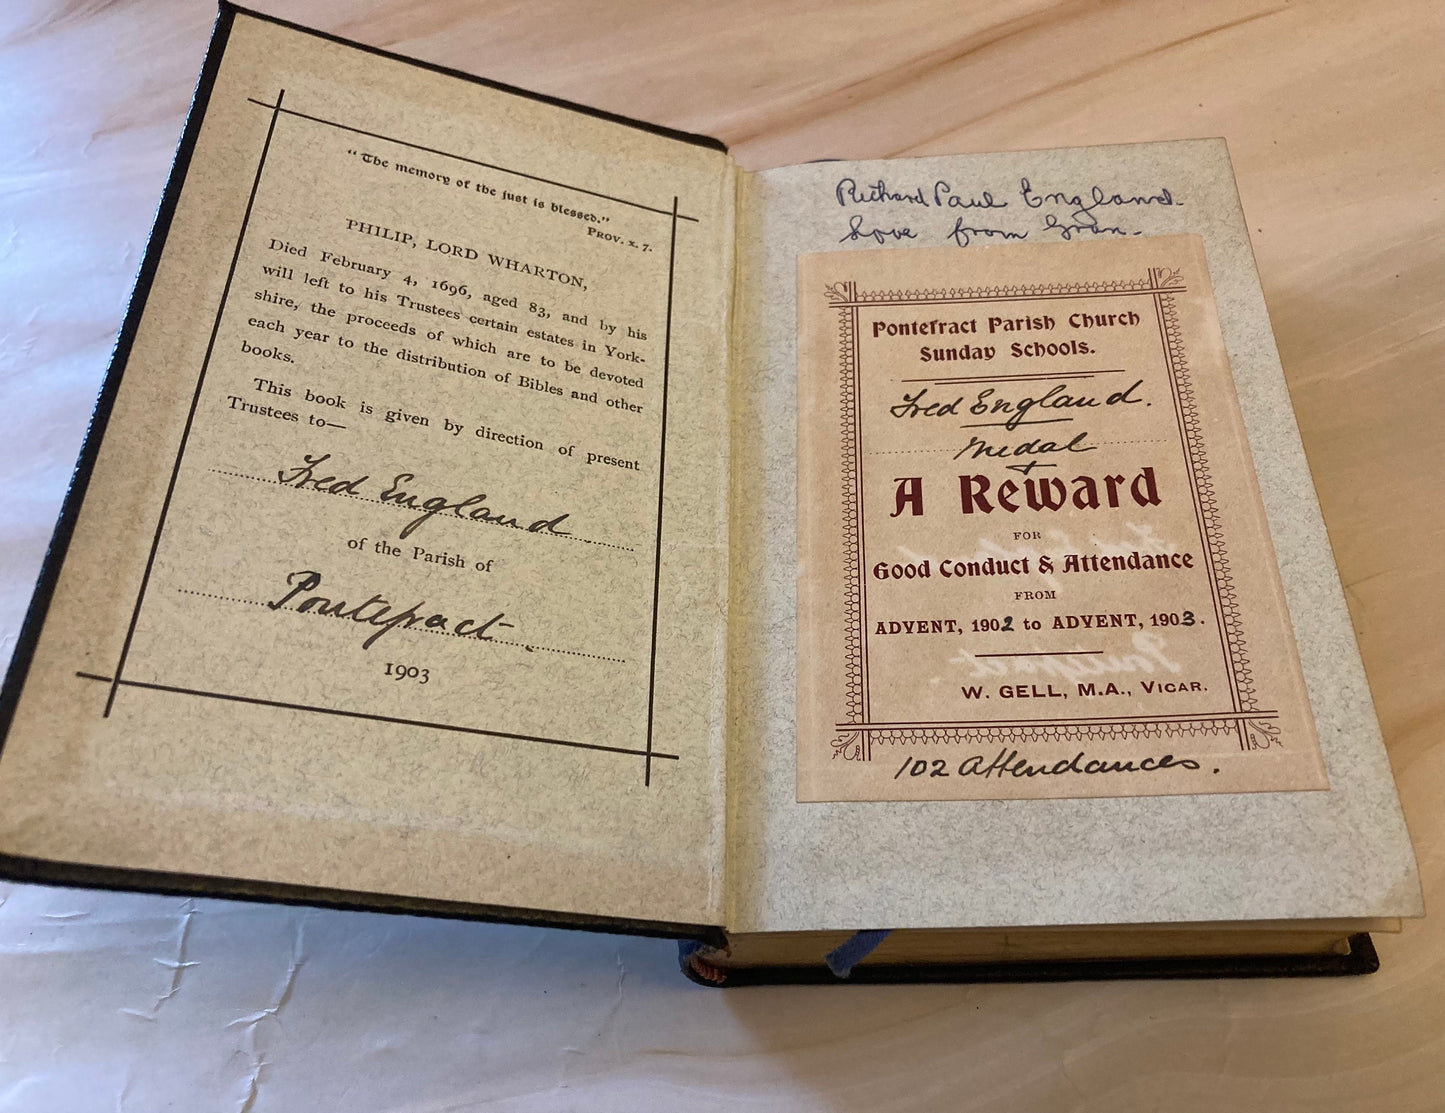 "The memory of the just is blessed."
PROV. x. 7.
PHILIP, LORD WHARTON,
Died February 4, 1696, aged 83, and by his
will left to his Trustees certain estates in York-
shire, the proceeds of which are to be devoted
each year to the distribution of Bibles and other
books.
This book is given by direction of present
Trustees to—
Fred England
of the Parish of
Pontefract
1903
Richard Paul England.
Love from Gran.
Pontefract Parish Church
Sunday Schools.
Fred England.
Medal
+
A Reward
FOR
Good Conduct & Attendance
FROM
ADVENT, 1902 to ADVENT, 1903.
W. GELL, M.A., VICAR.
102 Attendances.